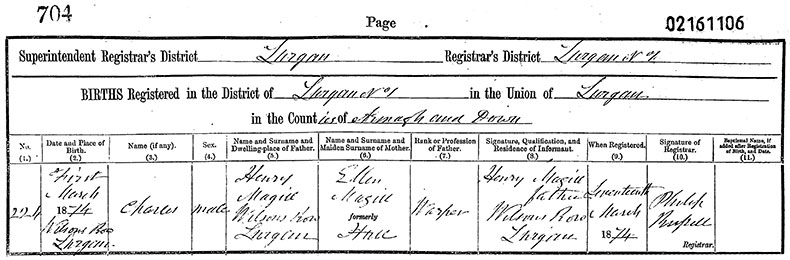 704 Page 02161106
Superintendent Registrar's District Lurgan Registrar's District Lurgan No 1
BIRTHS Registered in the District of Lurgan No 1 in the Union of Lurgan
in the Counties of Armagh and Down
No. (1.) Date and Place of Birth. (2.) Name (if any). (3.) Sex. (4.) Name and Surname and Dwelling-place of Father. (5.) Name and Surname and Maiden Surname of Mother. (6.) Rank or Profession of Father. (7.) Signature, Qualification, and Residence of Informant. (8.) When Registered. (9.) Signature of Registrar. (10.) Baptismal Name, if added after Registration of Birth, and Date. (11.)
224 First March 1874 Wilsons Row Lurgan Charles male Henry Magill Wilsons Row Lurgan Ellen Magill formerly Hall Warper Henry Magill father Wilsons Row Lurgan Seventeenth March 1874 Philip Russell Registrar.